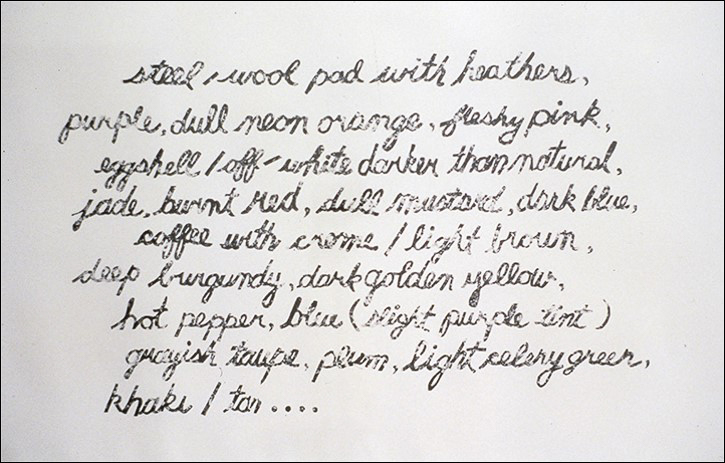 steel / wool pad with heathers,
purple, dull neon orange, fleshy pink,
eggshell / off-white darker than natural,
jade, burnt red, dull mustard, dark blue,
coffee with creme / light brown,
deep burgundy, dark golden yellow,
hot pepper, blue (slight purple tint)
grayish taupe, plum, light celery green,
khaki / tan....